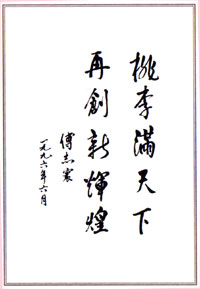 桃李满天下
再创新辉煌
傅志寰
一九九六年六月